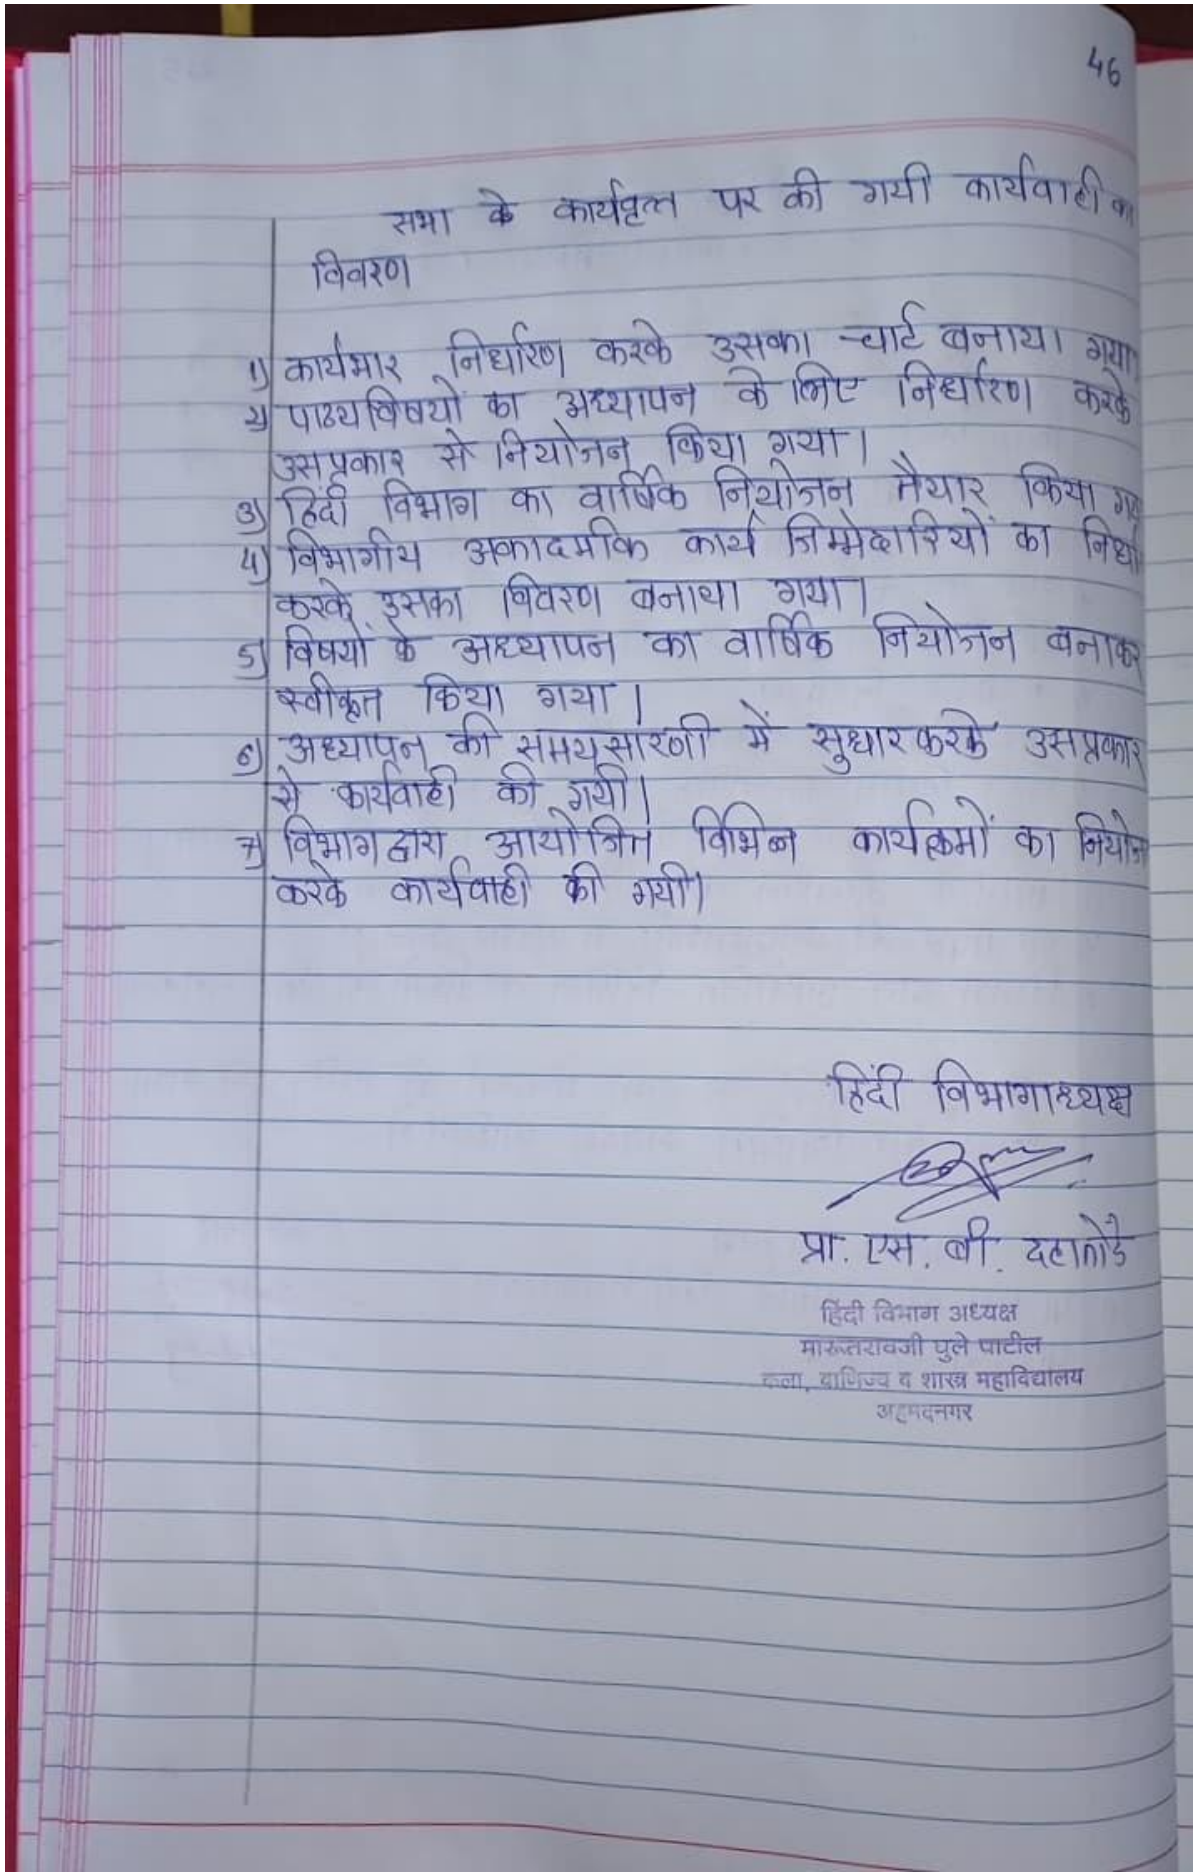 46
सभा के कार्यवृत्त पर की गयी कार्यवाही का
विवरण
1) कार्यभार निर्धारण करके उसका चार्ट बनाया गया
2) पाठ्यविषयों का अध्यापन के लिए निर्धारण करके
उसप्रकार से नियोजन किया गया।
3) हिंदी विभाग का वार्षिक नियोजन तैयार किया
4) विभागीय अकादमीक कार्य जिम्मेदारियों का निर्धा
करके उसका विवरण बनाया गया।
5) विषयों के अध्यापन का वार्षिक नियोजन बनाकर
स्वीकृत किया गया।
6) अध्यापन की समयसारणी में सुधार करके उसप्रकार
से कार्यवाही की गयी।
7) विभाग द्वारा आयोजित विभिन्न कार्यक्रमों का नियोज
करके कार्यवाही की गयी।
हिंदी विभागाध्यक्ष
प्रा. एस. बी. दहातोंडे
हिंदी विभाग अध्यक्ष
मारूतरावजी घुले पाटील
कला, वाणिज्य व शास्त्र महाविद्यालय
अहमदनगर